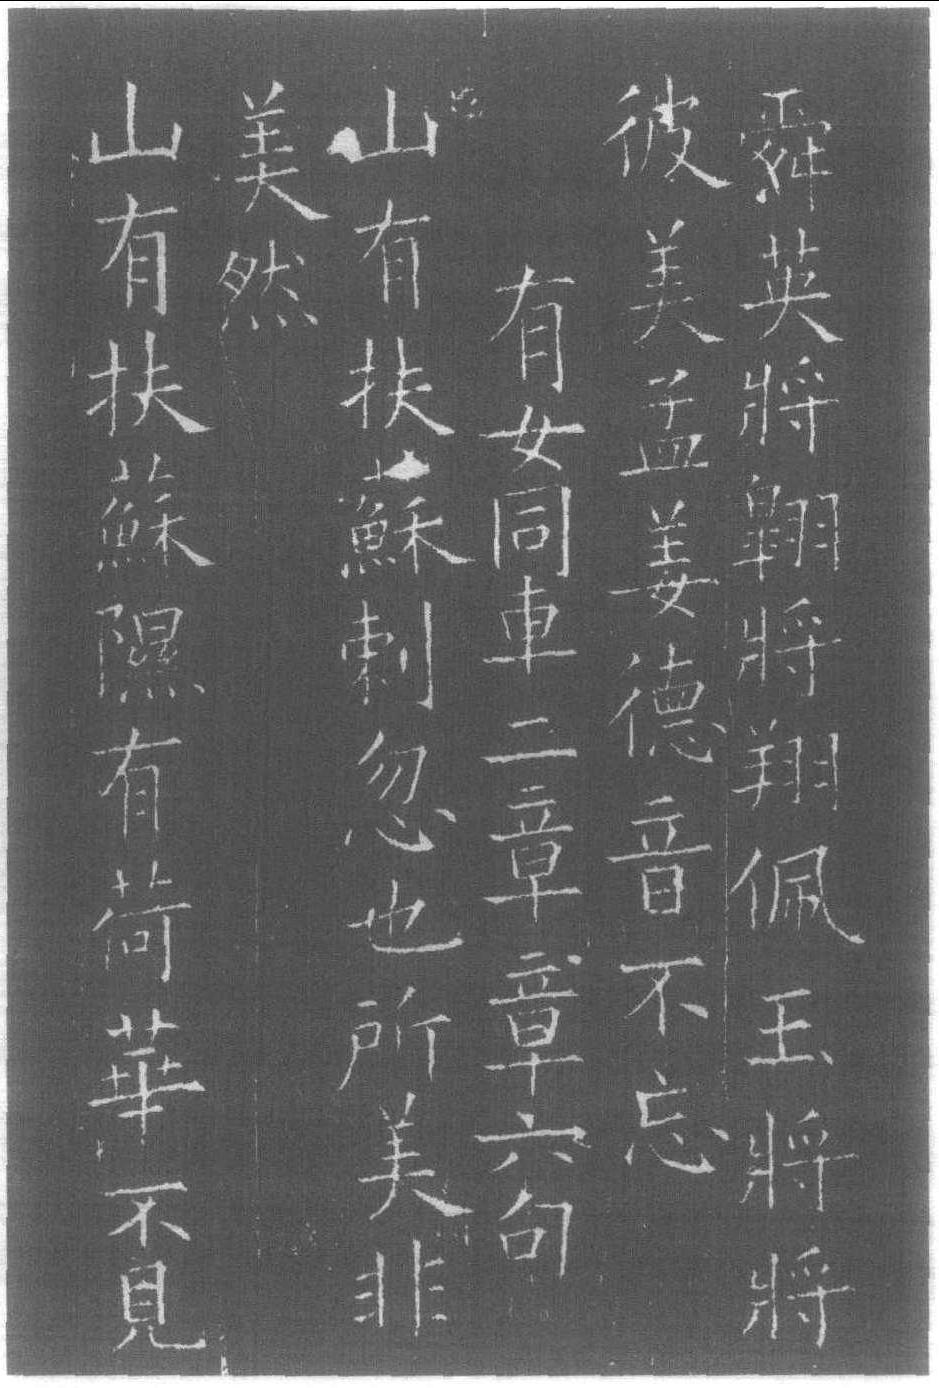 舜英將翺將翔佩玉將將
彼美孟姜德音不忘
有女同車二章章六句
山有扶蘇刺忽也所美非
美然
山有扶蘇隰有荷華不見